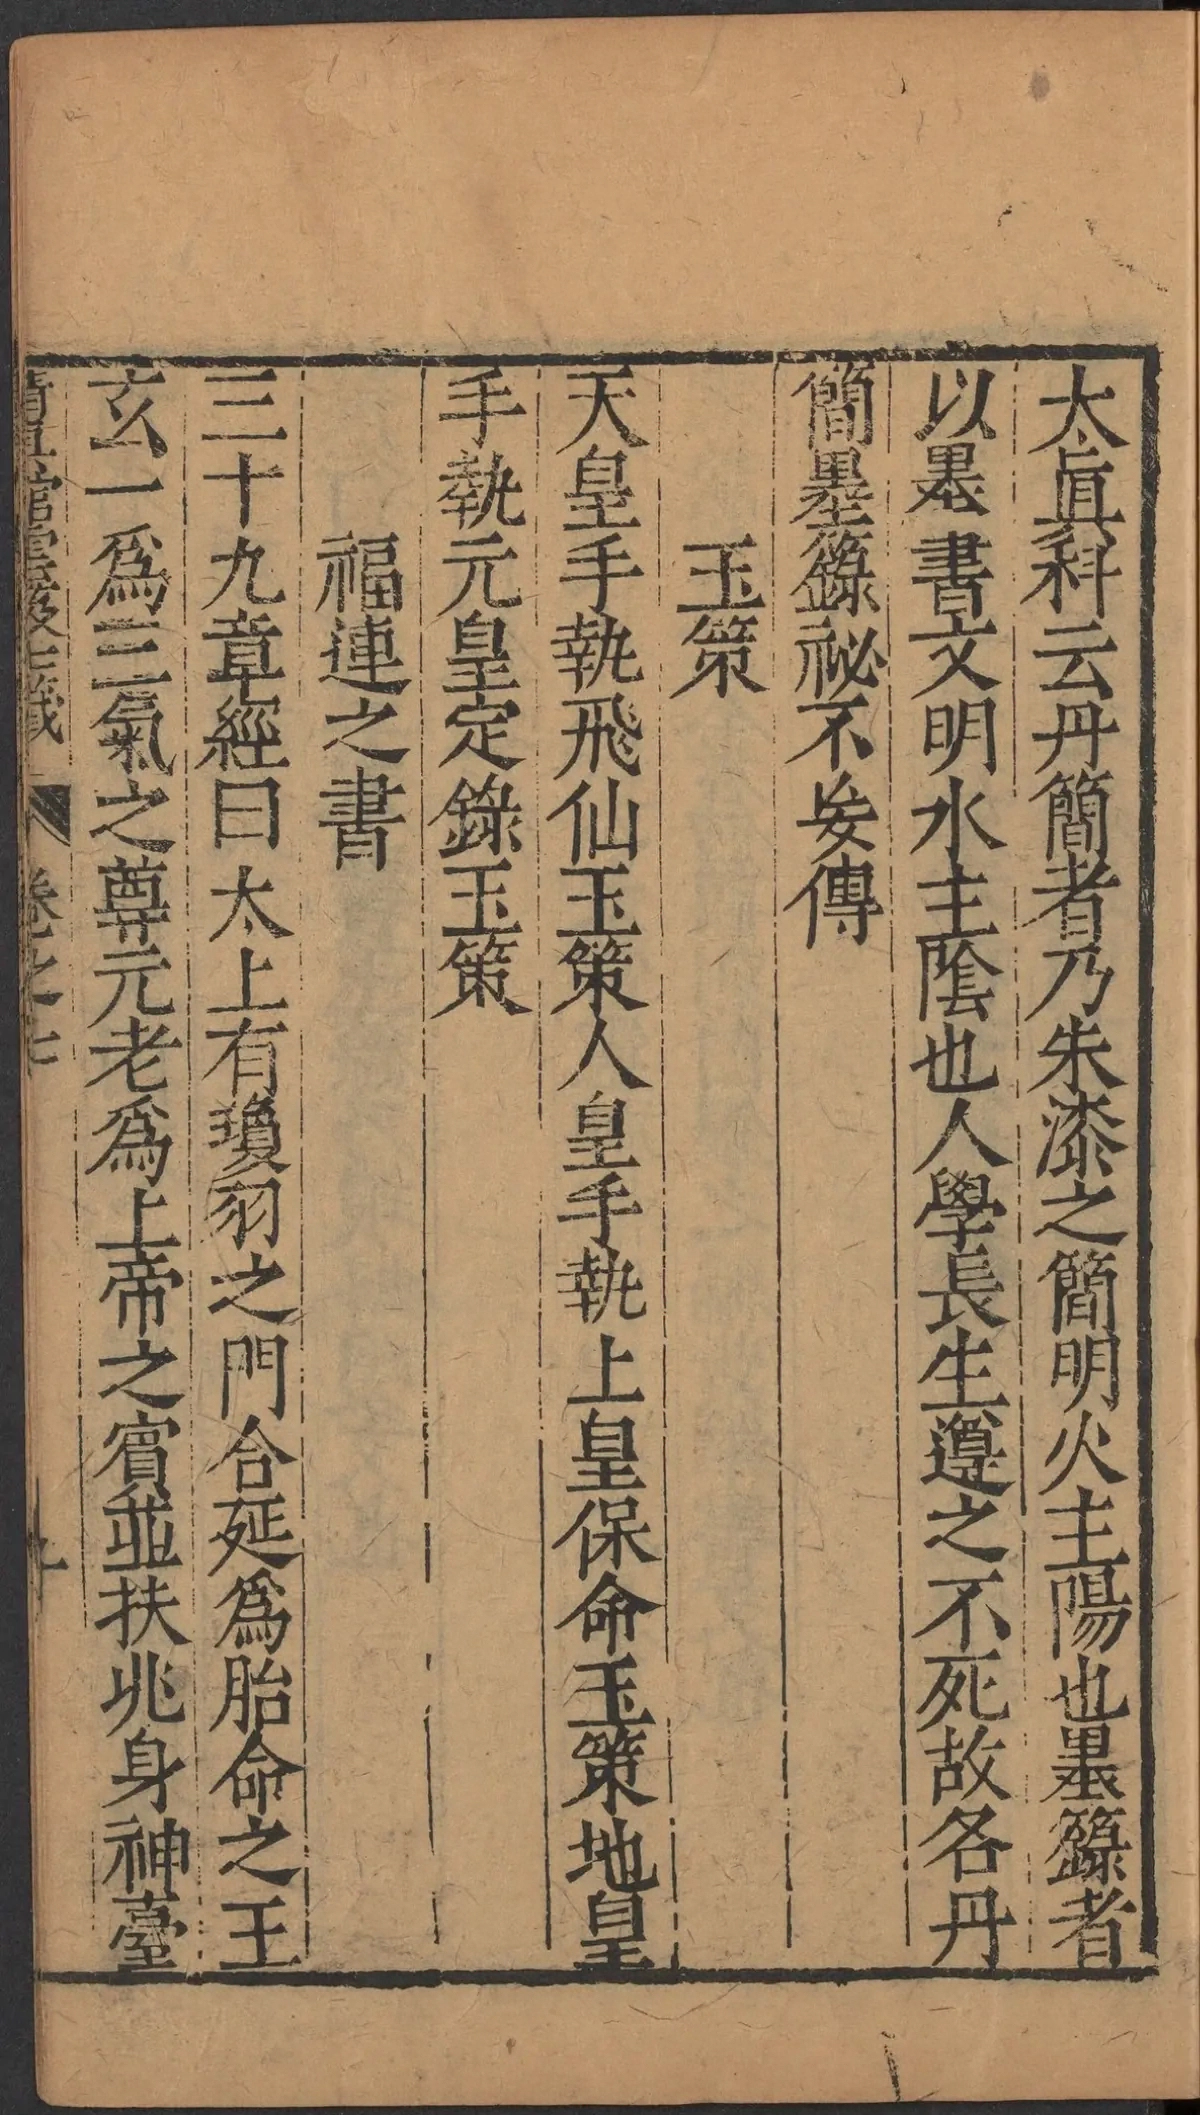 太眞科云丹簡者乃朱漆之簡明火主陽也墨籙者
以墨書文明水主陰也人學長生遵之不死故各丹
簡墨籙祕不妄傳
玉策
天皇手執飛仙玉策人皇手執上皇保命玉策地皇
手執元皇定錄玉策
福連之書
三十九章經曰太上有瓊羽之門合延爲胎命之王
玄一爲三氣之尊元老爲上帝之賓並扶兆身神臺
卷之七